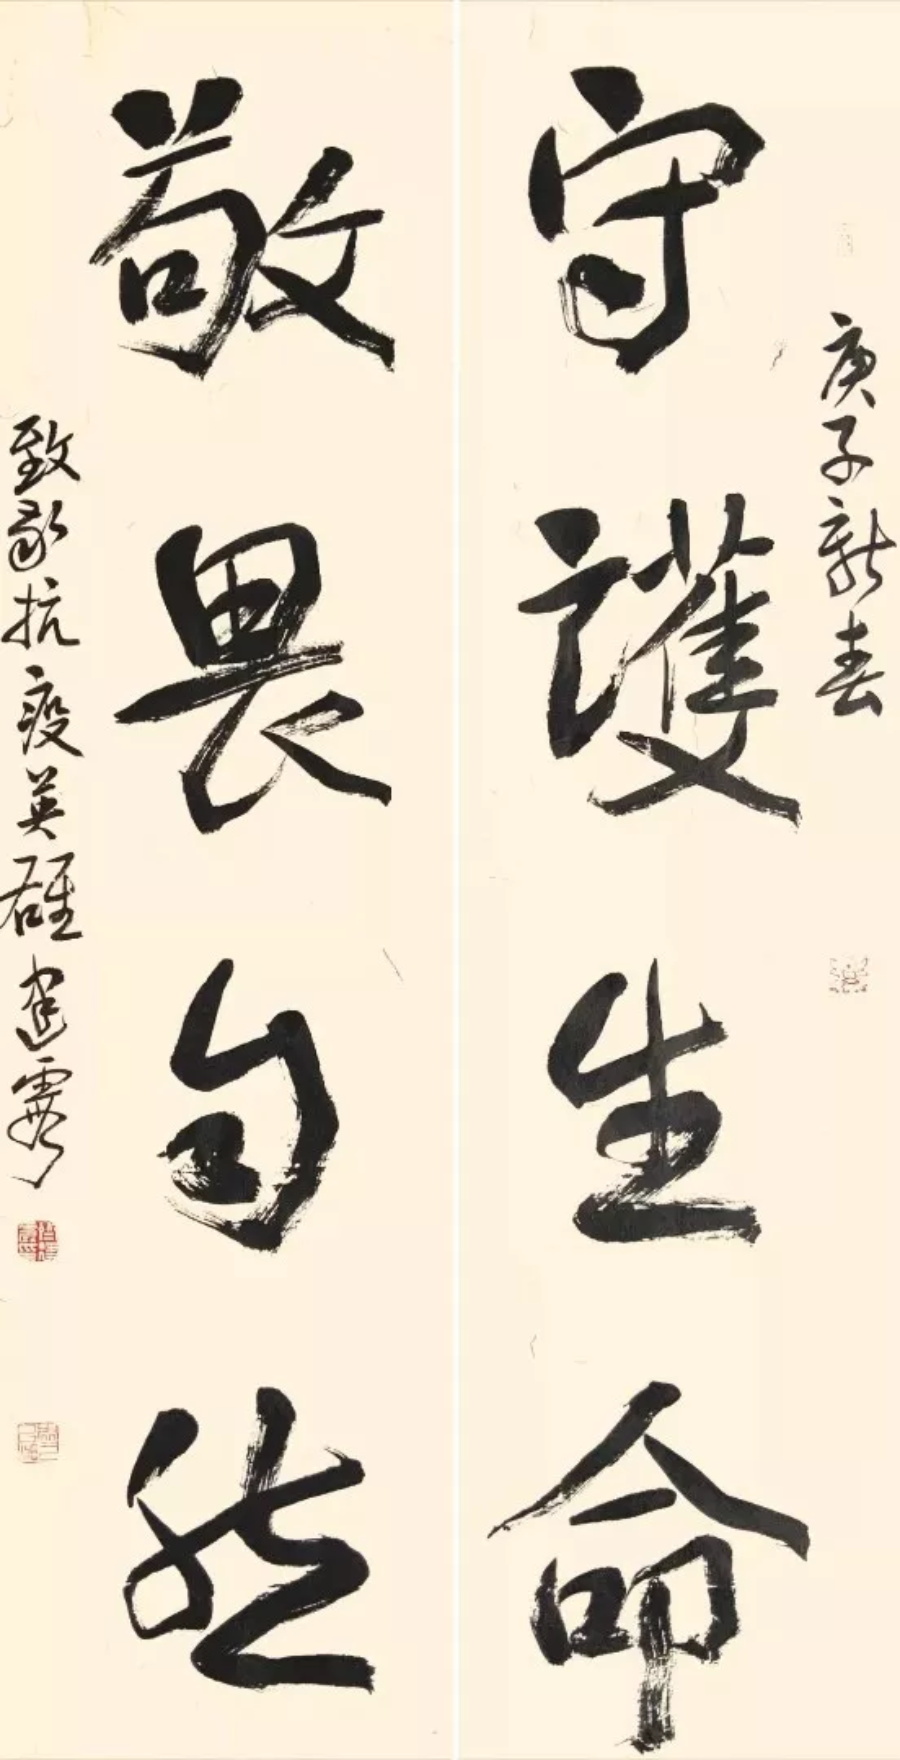 庚子新春
守護生命
敬畏自然
致敬抗疫英雄建